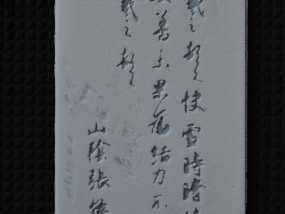 羲之頓首快雪時晴
善未果為結力不
羲之頓首
山陰張侯